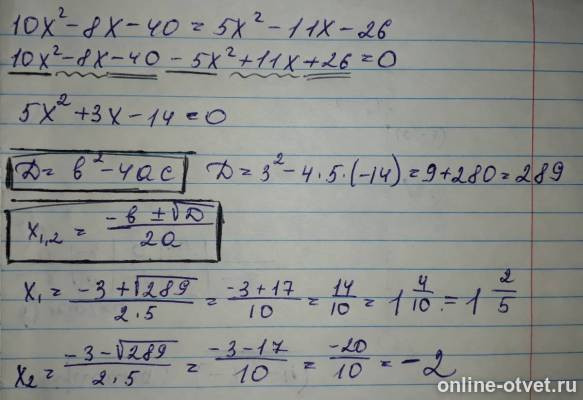 10x² - 8x - 40 = 5x² - 11x - 26
10x² - 8x - 40 - 5x² + 11x + 26 = 0
5x² + 3x - 14 = 0
Д = в² - 4ас Д = 3² - 4 · 5 · (-14) = 9 + 280 = 289
x₁,₂ = (-в ± √Д) / 2а
x₁ = (-3 + √289) / (2 · 5) = (-3 + 17) / 10 = 14/10 = 1 4/10 = 1 2/5
x₂ = (-3 - √289) / (2 · 5) = (-3 - 17) / 10 = -20/10 = -2
online-otvet.ru